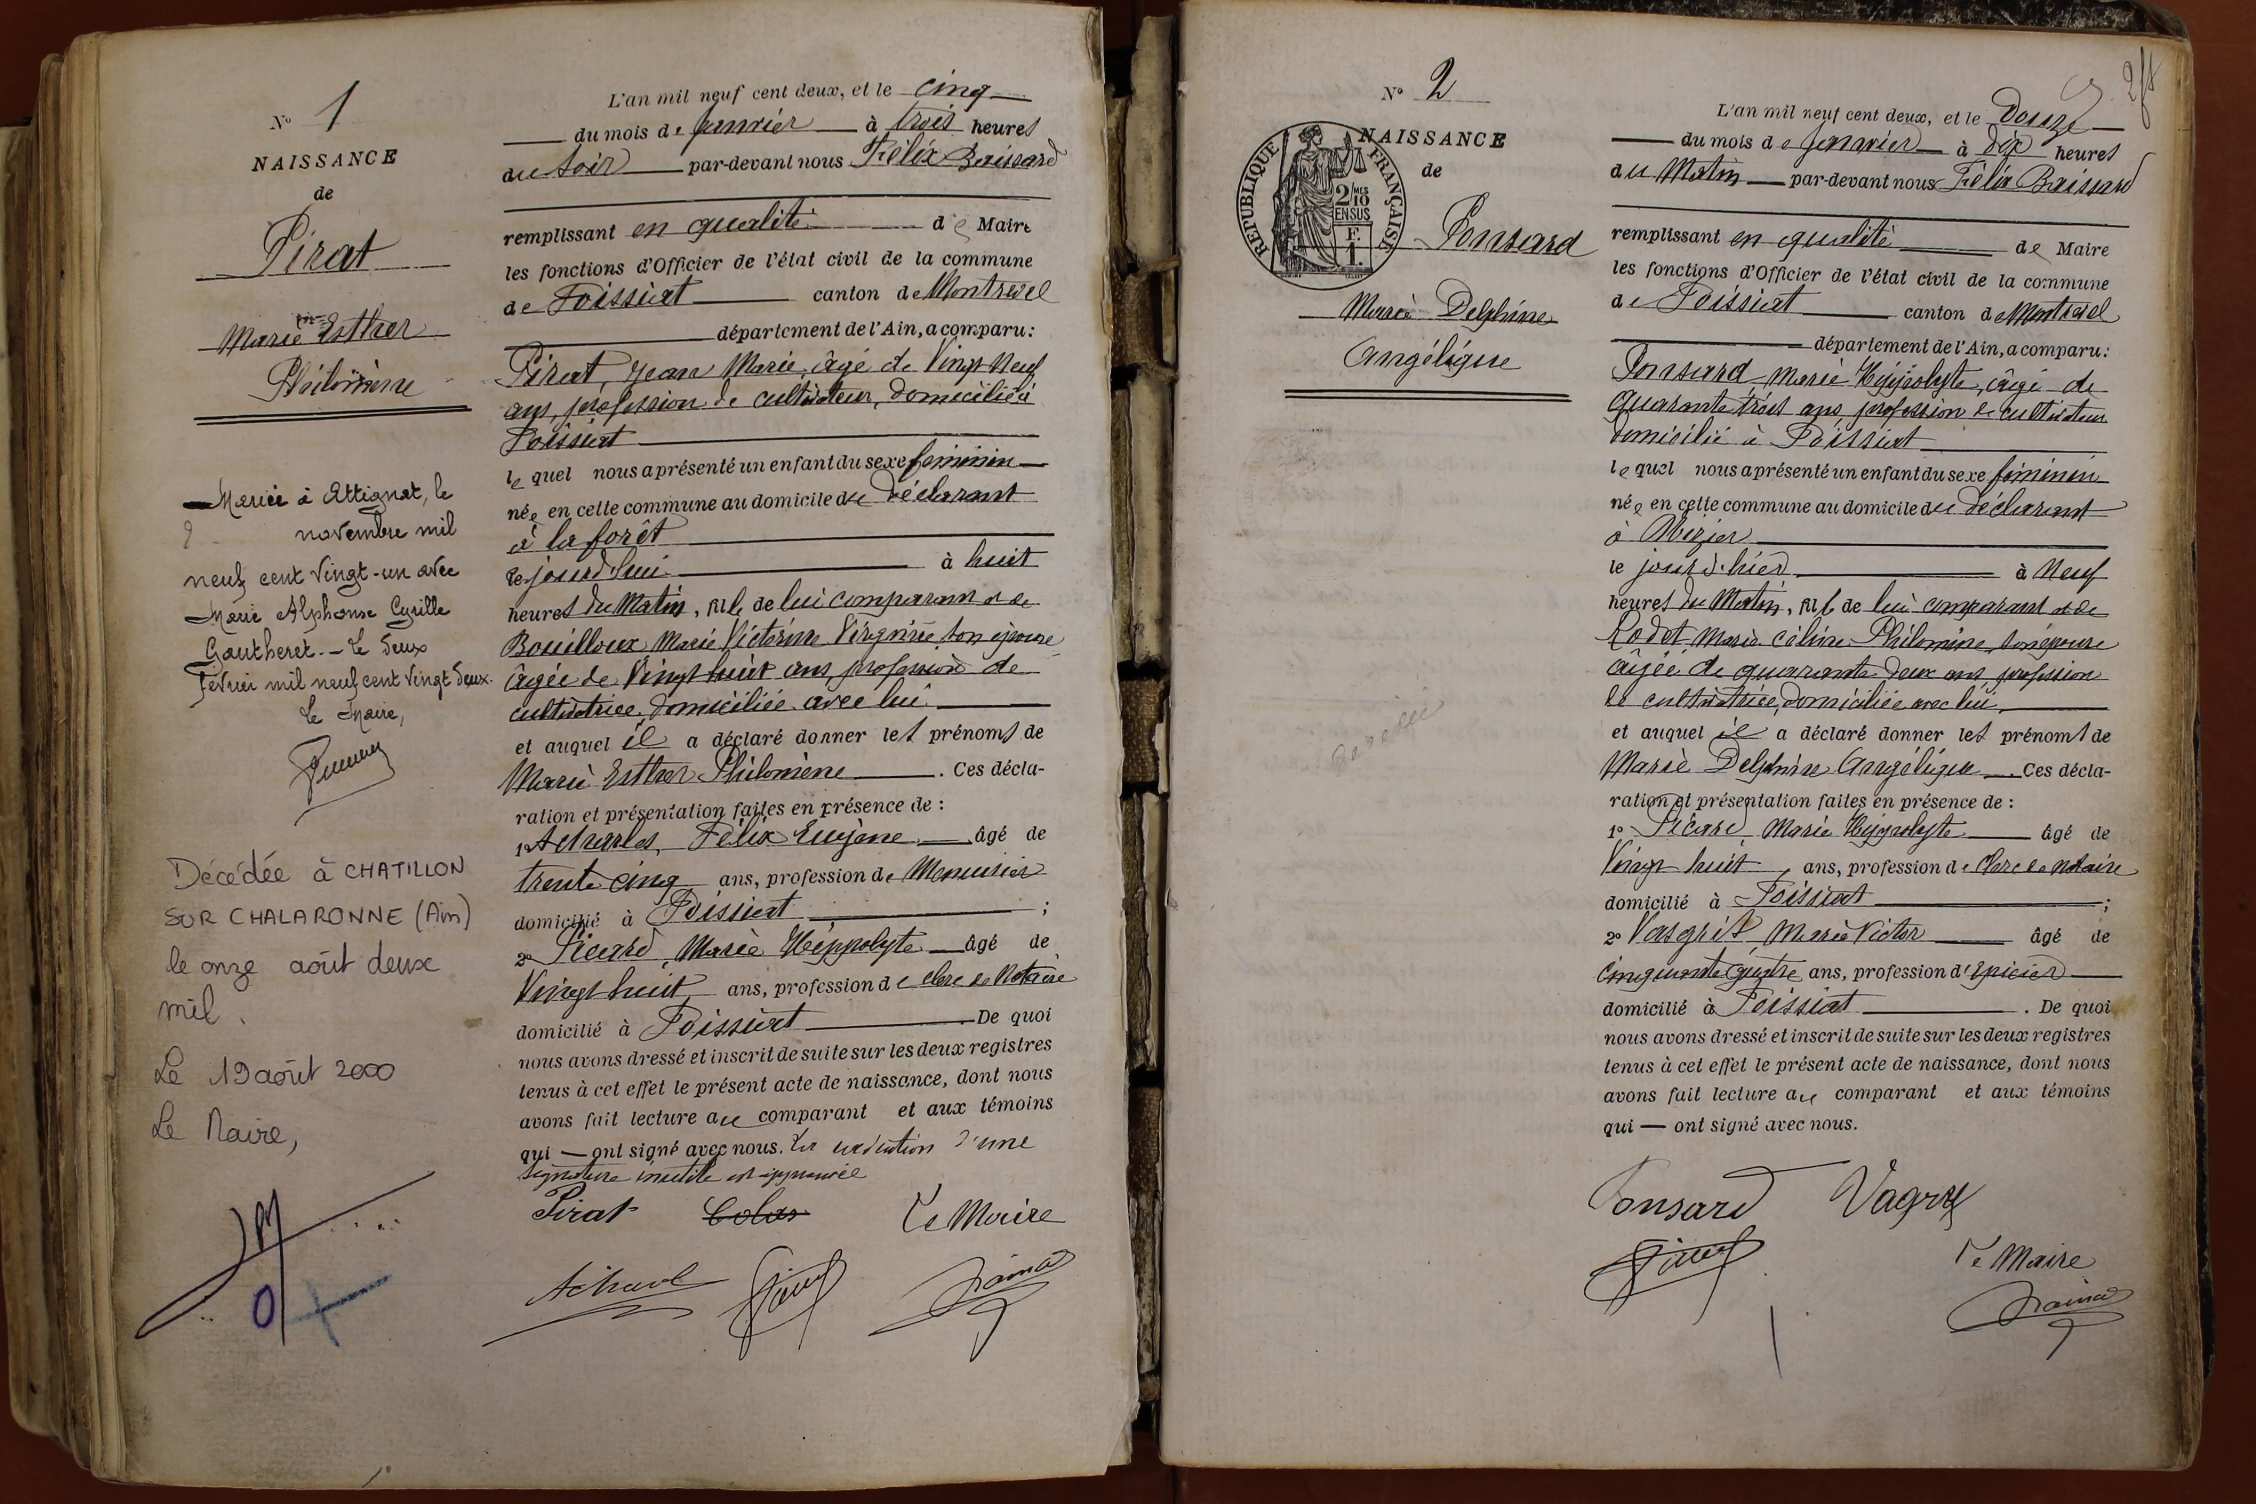 N° 1
NAISSANCE
de
Pirat
Marie Esther
Philomène
Mariée à Attignat, le
novembre mil
neuf cent vingt-un avec
Marie Alphonse Cyrille
Gautheret. - Le deux
février mil neuf cent vingt deux.
Le Maire,
Décédée à CHATILLON
SUR CHALARONNE (Ain)
le onze août deux
mil.
Le 19 août 2000
Le Maire,
L'an mil neuf cent deux, et le cinq
du mois de janvier à trois heures
du soir par-devant nous Félix
remplissant en qualité de Maire
les fonctions d'Officier de l'état civil de la commune
de Foissiat canton de Montrevel
département de l'Ain, a comparu :
Pirat, Jean Marie, âgé de Vingt Neuf
ans, profession de cultivateur, domicilié à
Foissiat
lequel nous a présenté un enfant du sexe féminin
née en cette commune au domicile du déclarant
à la forêt
le jourd'hui à huit
heures du Matin, fille de lui comparant et de
Bouilloux Marie Victorine Virginie son épouse
âgée de Vingt huit ans, profession de
cultivatrice, domiciliée avec lui
et auquel il a déclaré donner les prénoms de
Marie Esther Philomène . Ces décla-
ration et présentation faites en présence de :
1° Félix Eugène âgé de
trente cinq ans, profession de Menuisier
domicilié à Foissiat ;
2° Picard, Marie Hippolyte âgé de
Vingt huit ans, profession de clerc de Notaire
domicilié à Foissiat . De quoi
nous avons dressé et inscrit de suite sur les deux registres
tenus à cet effet le présent acte de naissance, dont nous
avons fait lecture au comparant et aux témoins
qui — ont signé avec nous. La radiation d'une
signature inutile est approuvée
Pirat Colas Le Maire
N° 2
NAISSANCE
de
REPUBLIQUE FRANÇAISE
2/10
EN SUS
F.
1.
Ponsard
Marie Delphine
Angélique
L'an mil neuf cent deux, et le Douze
du mois de janvier à dix heures
du Matin par-devant nous Félix
remplissant en qualité de Maire
les fonctions d'Officier de l'état civil de la commune
de Foissiat canton de Montrevel
département de l'Ain, a comparu :
Ponsard Marie Hippolyte, âgé de
quarante trois ans, profession de cultivateur
domicilié à Foissiat
lequel nous a présenté un enfant du sexe féminin
née en cette commune au domicile du déclarant
à
le jour d'hier à Neuf
heures du Matin, fille de lui comparant et de
Rodet Marie Céline Philomène, son épouse
âgée de quarante deux ans, profession
de cultivatrice, domiciliée avec lui,
et auquel il a déclaré donner les prénoms de
Marie Delphine Angélique . Ces décla-
ration et présentation faites en présence de :
1° Picard Marie Hippolyte âgé de
Vingt huit ans, profession de clerc de notaire
domicilié à Foissiat ;
2° Marie Victor âgé de
cinquante quatre ans, profession d'Epicier
domicilié à Foissiat . De quoi
nous avons dressé et inscrit de suite sur les deux registres
tenus à cet effet le présent acte de naissance, dont nous
avons fait lecture au comparant et aux témoins
qui — ont signé avec nous.
Ponsard
Le Maire